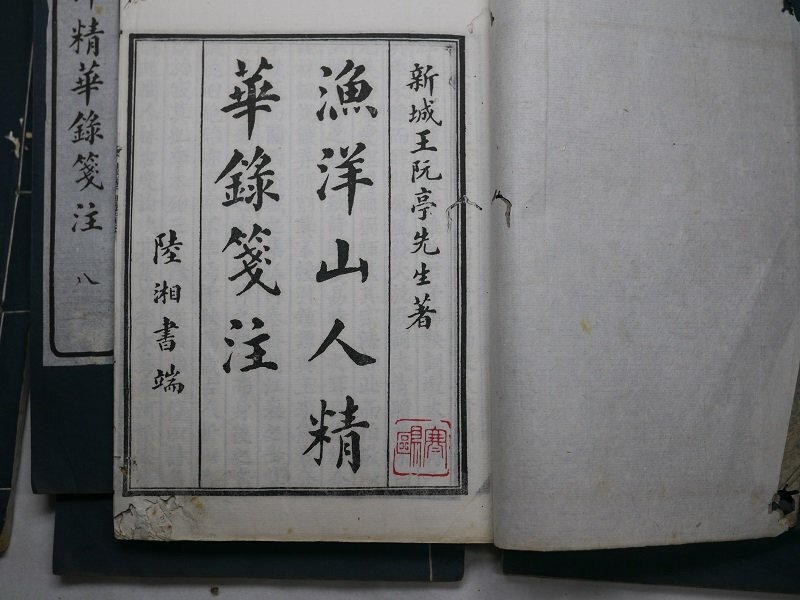 新城王阮亭先生著
漁洋山人精
華錄箋注
陸湘書端
精華錄箋注
八